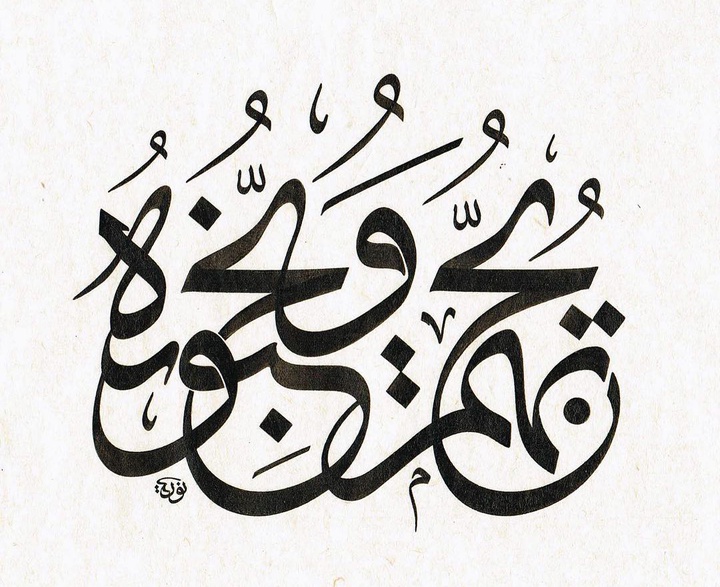 يُحِبُّهُمْ وَيُحِبُّونَهُ
نوري